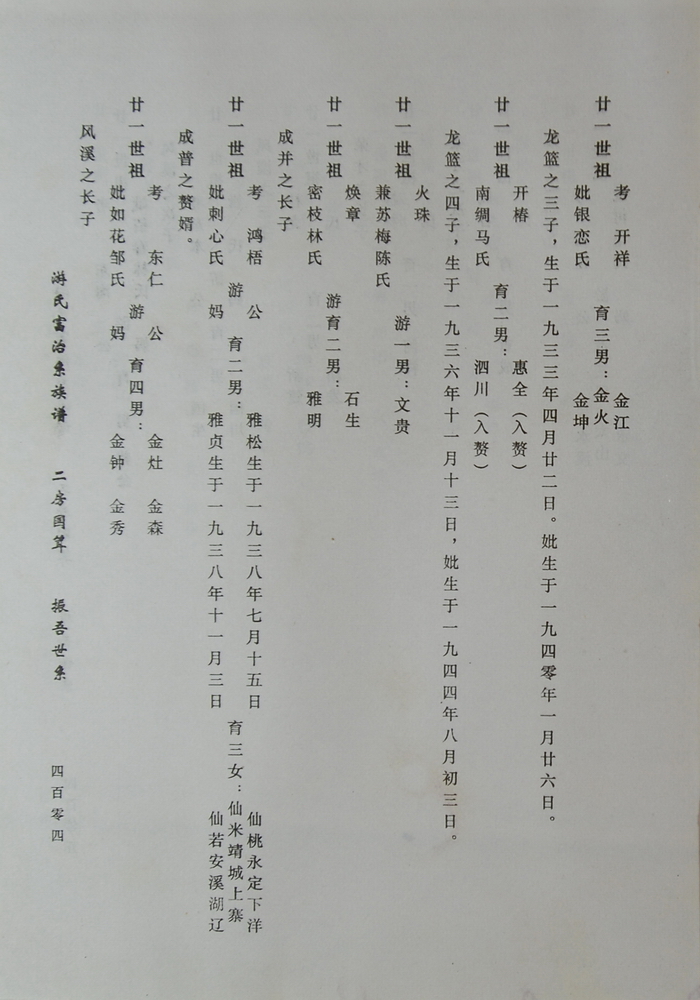 廿一世祖
考 开祥
妣银恋氏
育三男：
金江
金火
金坤
龙篮之三子，生于一九三三年四月廿二日。妣生于一九四零年一月廿六日。
廿一世祖
开椿
南绸马氏
育二男：
惠全（入赘）
泗川（入赘）
龙篮之四子，生于一九三六年十一月十三日，妣生于一九四四年八月初三日。
廿一世祖
火珠
兼苏梅陈氏
游一男：文贵
廿一世祖
焕章
密枝林氏
游育二男：
石生
雅明
成并之长子
廿一世祖
考 鸿梧 公
妣刺心氏 妈
游 育二男：
雅松生于一九三八年七月十五日
雅贞生于一九三八年十一月三日
育三女：
仙桃永定下洋
仙米靖城上寨
仙若安溪湖辽
成普之赘婿。
廿一世祖
考 东仁 公
妣如花邹氏 妈
游 育四男：
金灶 金森
金钟 金秀
风溪之长子
游氏富治系族谱 二房国 振吾世系 四百零四